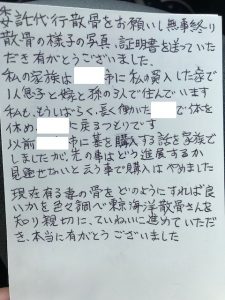 委託代行散骨をお願いし無事終り
散骨の様子の写真、証明書を送っていた
だき有がとうございました、
私の家族は 市に私の買入した家で
息子と嫁と孫の3人で住んでいます
私も、もうしばらく、長く働いた で体を
休め に戻るつもりです
以前 市に墓を購入する話を家族で
しましたが、先の事はどう進展するか
見通せないと言う事で購入はやめました
現在有る妻の骨をどのようにすれば良
いかを色々調べ東京海洋散骨さんを
知り親切に、ていねいに進めていただ
き、本当に有がとうございました